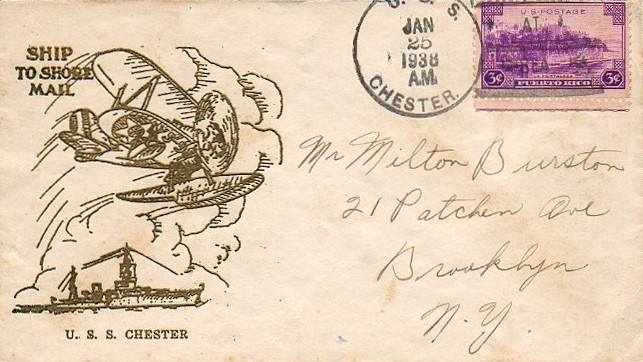 SHIP
TO SHORE
MAIL
U. S. S.
JAN
25
1938
A.M.
CHESTER.
U.S. POSTAGE
AT
SEA
3¢ 3¢
PUERTO RICO
Mr Milton Burston
21 Patchen Ave
Brooklyn
N.Y.
U. S. S. CHESTER